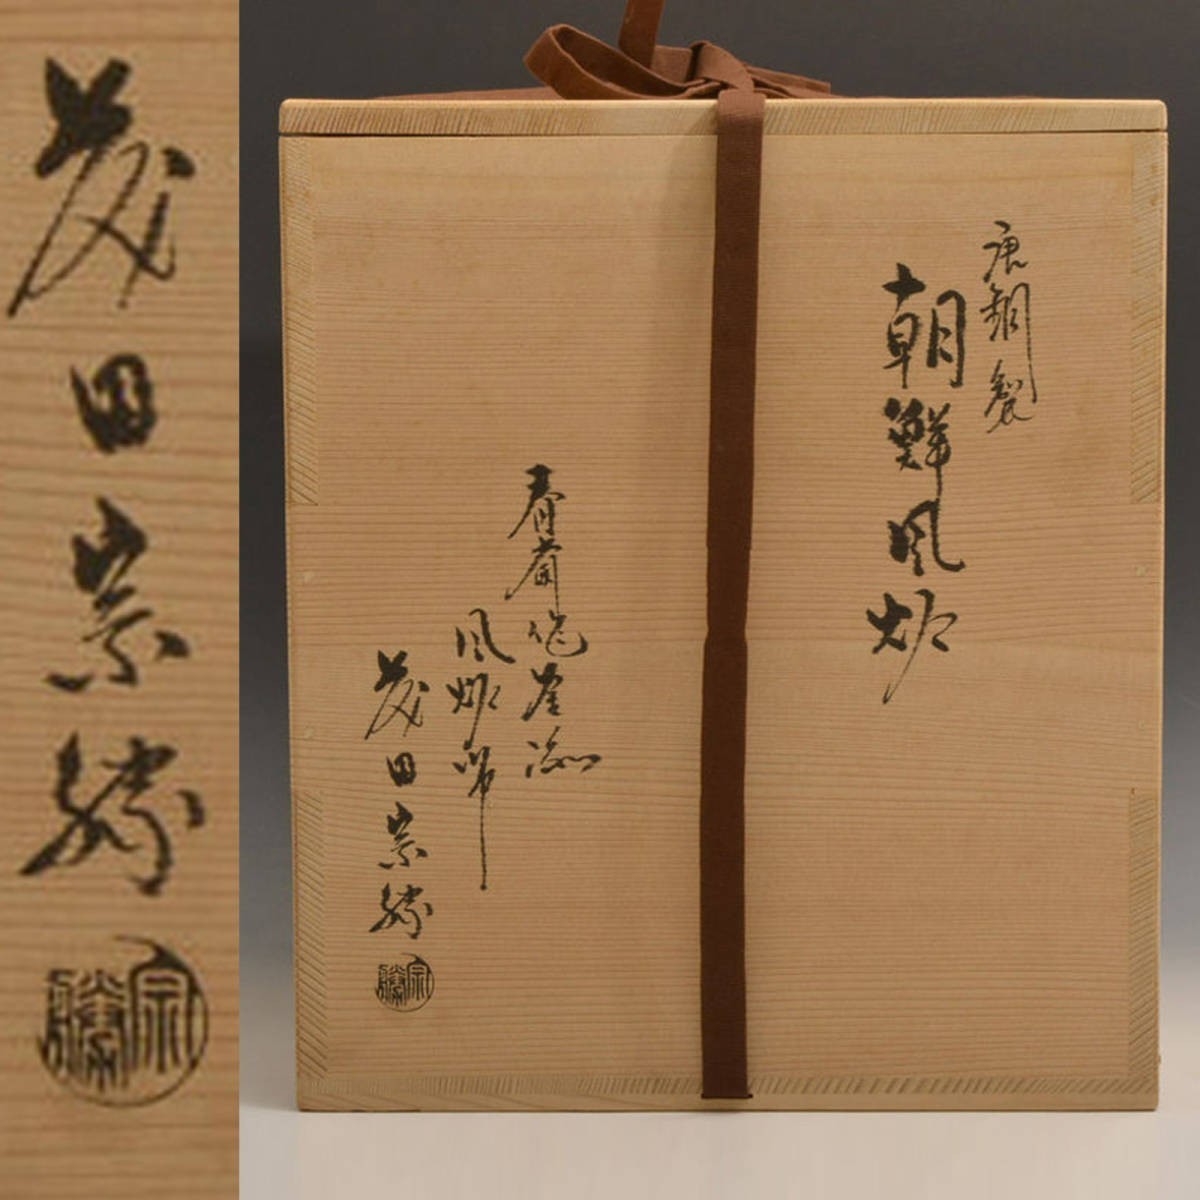 唐銅製
朝鮮風炉
春斎作釜添
風炉師
茂田宗勝
宗勝
茂田宗勝
宗勝